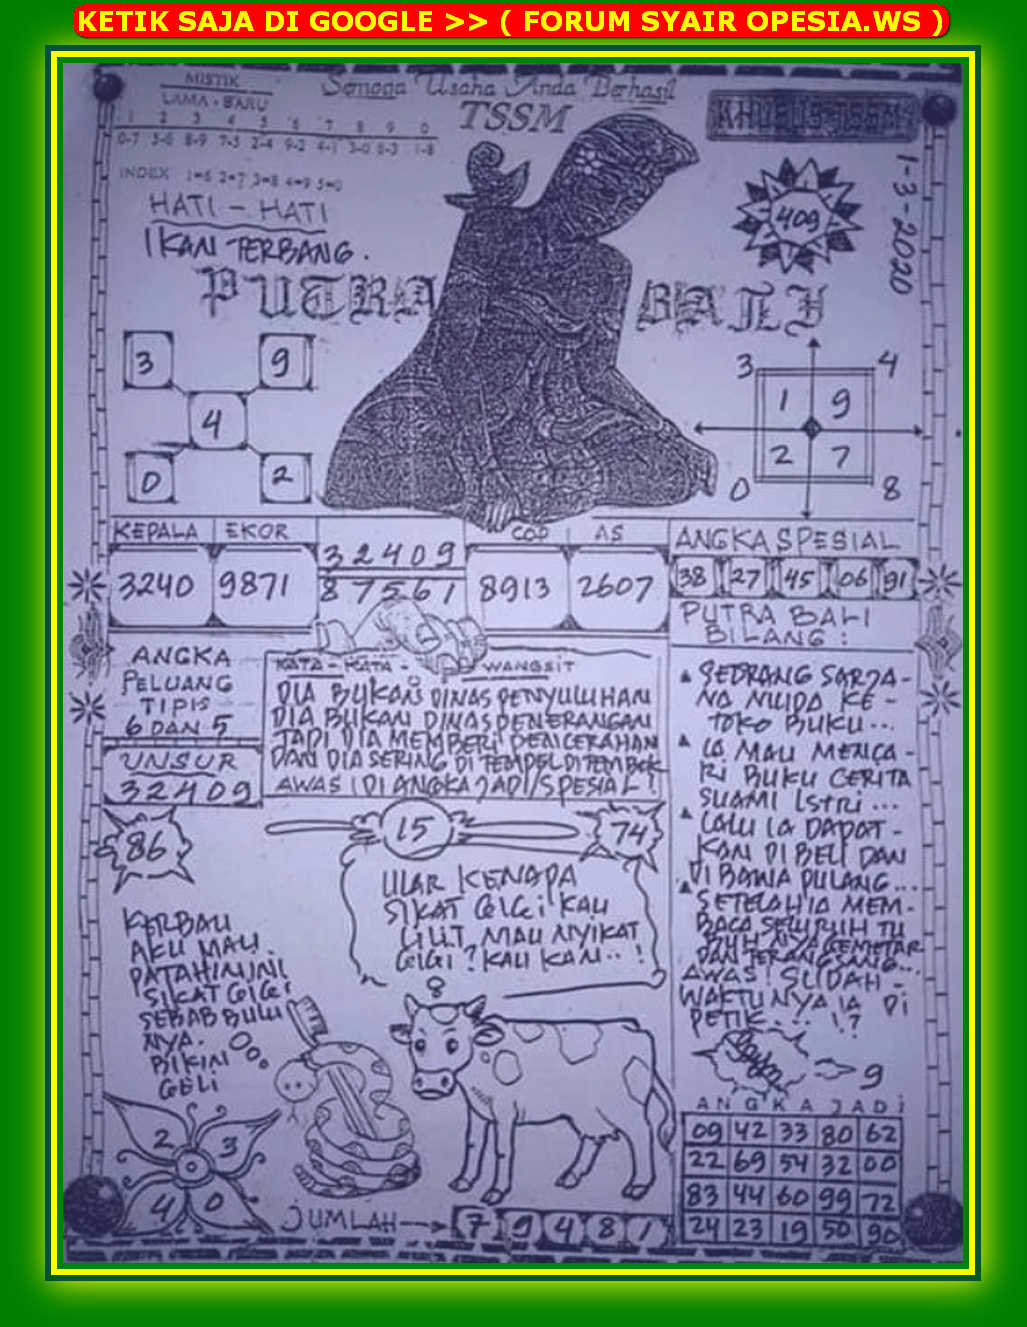 KETIK SAJA DI GOOGLE >> ( FORUM SYAIR OPESIA.WS )
MISTIK
LAMA - BARU
1 2 3 4 5 6 7 8 9 0
0-7 5-6 8-9 7-5 2-4 9-2 4-1 3-0 6-3 1-8
INDEX 1=6 2=7 3=8 4=9 5=0
Semoga Usaha Anda Berhasil
TSSM
KHUSUS TSSM
409
1-3-2020
HATI - HATI
IKAN TERBANG.
PUTRA BALI
3 9
4
0 2
3 4
1 9
2 7
0 8
KEPALA EKOR
3240 9871
32409
87561
COP AS
8913 2607
ANGKA SPESIAL
38 27 45 06 91
PUTRA BALI
BILANG :
ANGKA
PELUANG
TIPIS
6 DAN 5
UNSUR
32409
KATA - KATA - WANGSIT
DIA BUKAN DINAS PENYULUHAN
DIA BUKAN DINAS PENERANGAN
TAPI DIA MEMBERI PENCERAHAN
DAN DIA SERING DI TEMPEL DI TEMBOK
AWAS! DI ANGKA JADI/SPESIAL!
SEORANG SARJA-
NA MUDA KE-
TOKO BUKU...
IA MAU MENCA-
RI BUKU CERITA
SUAMI ISTRI...
LALU IA DAPAT-
KAN DI BELI DAN
DI BAWA PULANG...
SETELAH IA MEM-
BACA SELURUH TU
BUH NYA GEMETAR
DAN TERANGSANG...
AWAS! SUDAH-
WAKTUNYA IA DI
PETIK... !?
86
15
74
ULAR KENAPA
SIKAT GIGI KAU
LILIT MAU NYIKAT
GIGI? KAU KAN.. !
8
KERBAU
AKU MAU
PATAHIN INI
SIKAT GIGI
SEBAB BULU
NYA.
BIKIN
GELI
2 3
4 0
JUMLAH
7 9 4 8 1
9
ANGKA JADI
09 42 33 80 62
22 69 54 32 00
83 44 60 99 72
24 23 19 50 90